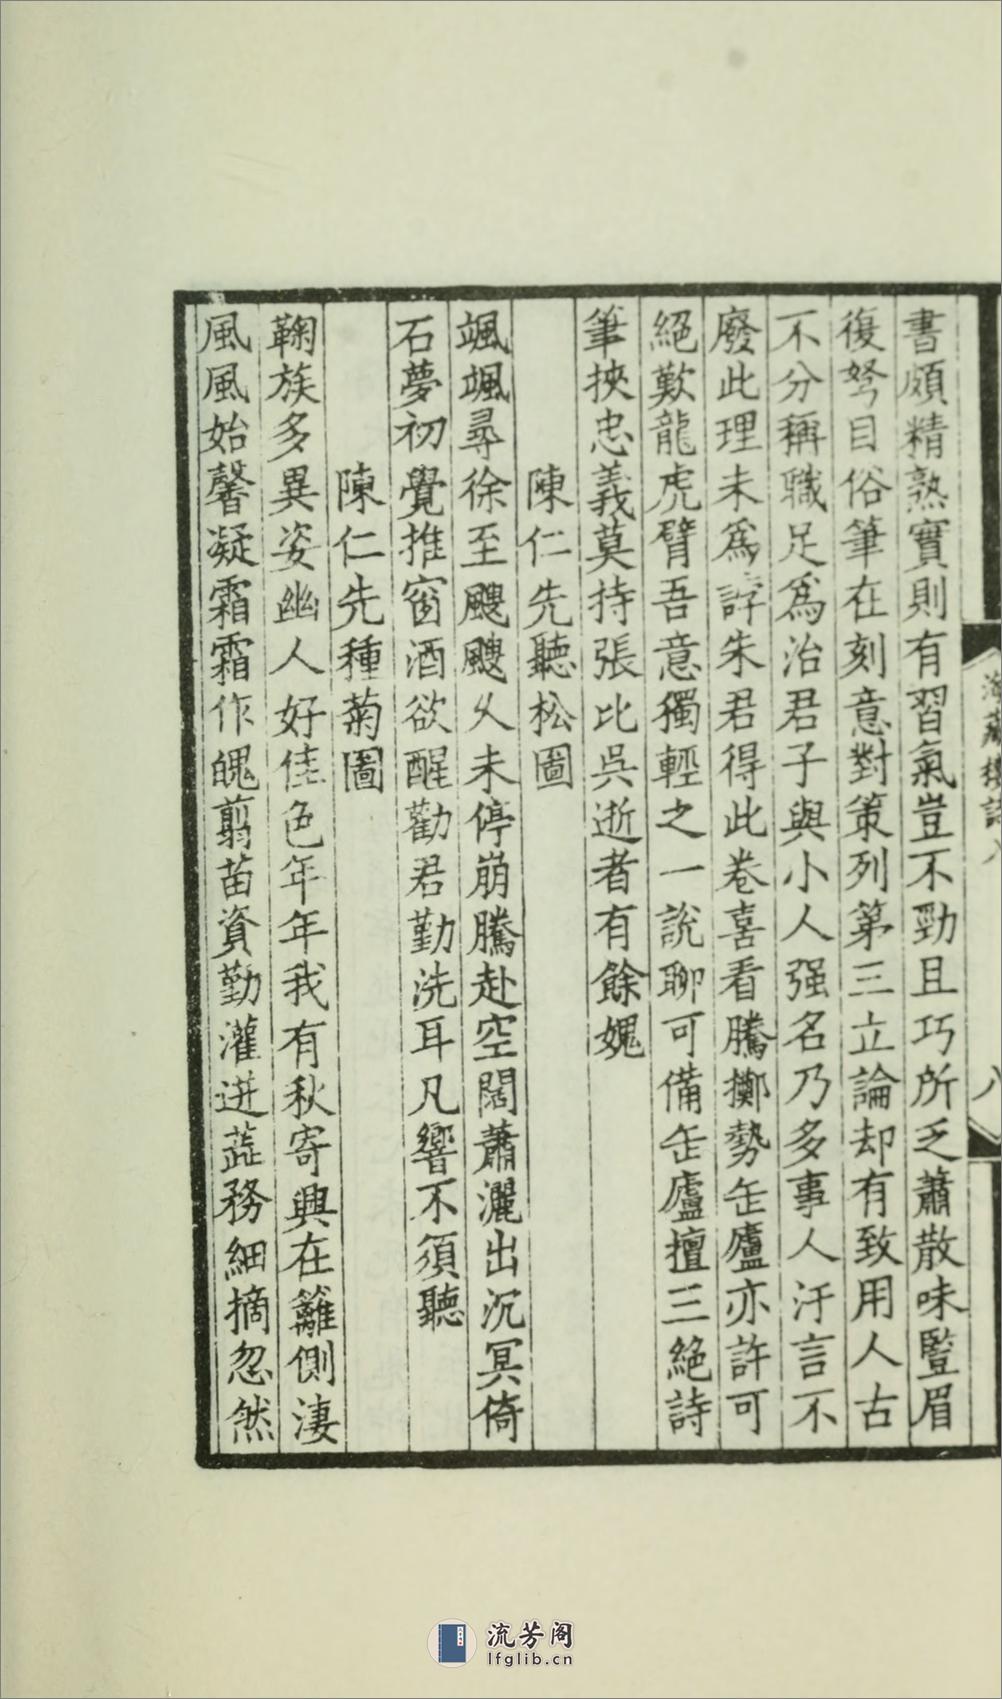 書頗精熟實則有習氣豈不勁且巧所乏蕭散味豎眉
復努目俗筆在刻意對策列第三立論却有致用人古
不分稱職足爲治君子與小人强名乃多事人汙言不
廢此理未爲誖朱君得此卷喜看騰擲勢缶廬亦許可
絕歎龍虎臂吾意獨輕之一說聊可備缶廬擅三絕詩
筆挾忠義莫持張比吳逝者有餘媿
陳仁先聽松圖
颯颯尋徐至颼颼久未停崩騰赴空闊蕭灑出沉冥倚
石夢初覺推窗酒欲醒勸君勤洗耳凡響不須聽
陳仁先種菊圖
鞠族多異姿幽人好佳色年年我有秋寄興在籬側淒
風風始馨凝霜霜作魄翦苗資勤灌迸蕋務細摘忽然
八
流芳阁
lfglib.cn